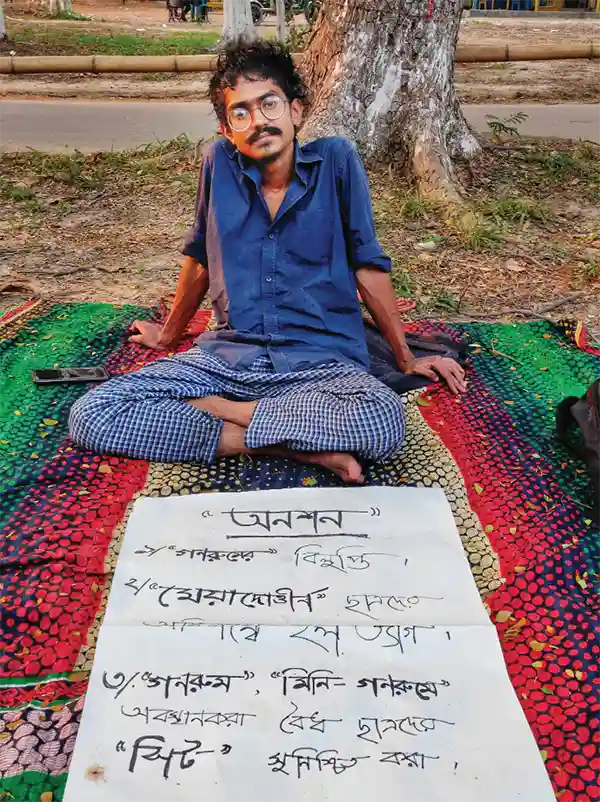 “অনশন”
১/ “গণরুমের” বিলুপ্তি।
২/ “মেয়াদোত্তীর্ণ” ছাত্রদের
অবিলম্বে হল ত্যাগ।
৩/. “গনরুম”, “মিনি-গনরুমে”
অবস্থানকরা বৈধ ছাত্রদের
“সিট” সুনিশ্চিত করা।